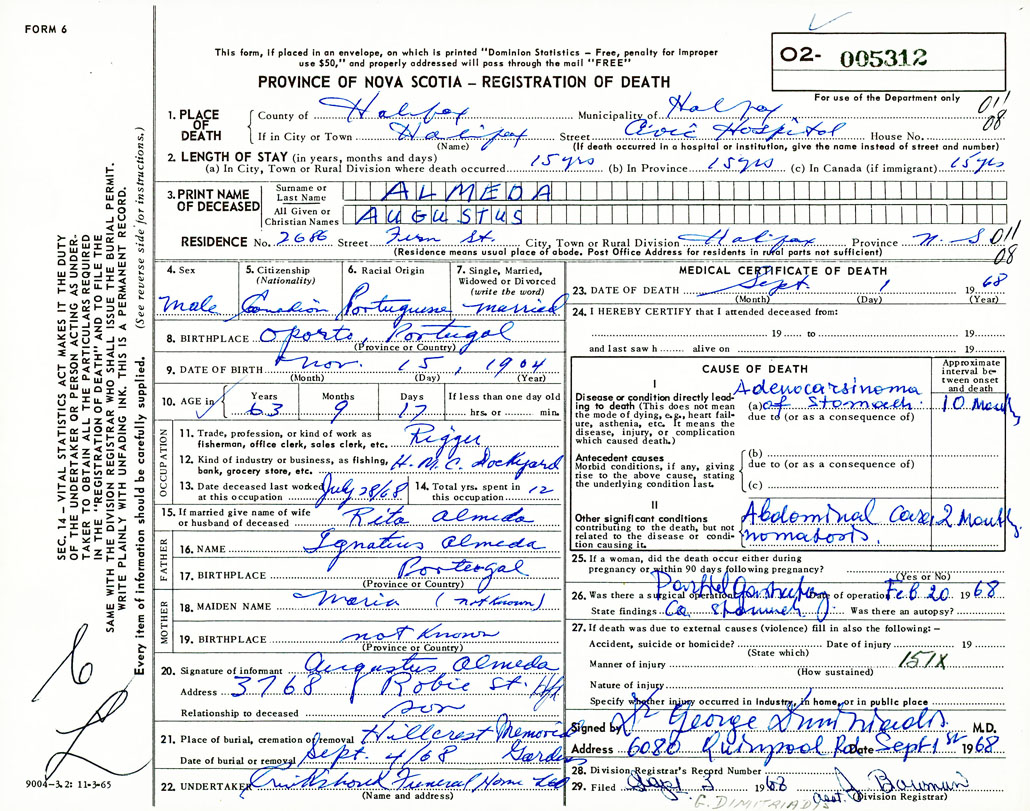 FORM 6
This form, if placed in an envelope, on which is printed "Dominion Statistics – Free, penalty for improper
use $50," and properly addressed will pass through the mail "FREE"
O2- 005312
PROVINCE OF NOVA SCOTIA – REGISTRATION OF DEATH
For use of the Department only
011
08
1. PLACE OF DEATH
County of Halifax Municipality of Halifax
If in City or Town Halifax Street Civic Hospital House No.
(Name) (If death occurred in a hospital or institution, give the name instead of street and number)
2. LENGTH OF STAY (in years, months and days)
(a) In City, Town or Rural Division where death occurred 15 yrs (b) In Province 15 yrs (c) In Canada (if immigrant) 15 yrs
3. PRINT NAME OF DECEASED
Surname or Last Name ALMEDA
All Given or Christian Names AUGUSTUS
RESIDENCE No. 2686 Street Fern St. City, Town or Rural Division Halifax Province N.S 011
(Residence means usual place of abode. Post Office Address for residents in rural parts not sufficient) 08
4. Sex
Male
5. Citizenship (Nationality)
Canadian
6. Racial Origin
Portuguese
7. Single, Married, Widowed or Divorced (write the word)
married
8. BIRTHPLACE Oporto, Portugal
(Province or Country)
9. DATE OF BIRTH Nov. 15, 1904
(Month) (Day) (Year)
10. AGE in Years 63 Months 9 Days 17 If less than one day old hrs. or min.
OCCUPATION
11. Trade, profession, or kind of work as
fisherman, office clerk, sales clerk, etc. Rigger
12. Kind of industry or business, as fishing,
bank, grocery store, etc. H.M.C. Dockyard
13. Date deceased last worked
at this occupation July 28/68
14. Total yrs. spent in
this occupation 12
15. If married give name of wife
or husband of deceased Rita Almeda
FATHER
16. NAME Ignatius Almeda
17. BIRTHPLACE Portugal
(Province or Country)
MOTHER
18. MAIDEN NAME Maria (not Known)
19. BIRTHPLACE not Known
(Province or Country)
20. Signature of informant Augustus Almeda
Address 3768 Robie St. Hfx
Relationship to deceased son
21. Place of burial, cremation or removal Hillcrest Memorial
Gardens
Date of burial or removal Sept. 4/68
22. UNDERTAKER Cruikshank Funeral Home Ltd
(Name and address)
MEDICAL CERTIFICATE OF DEATH
23. DATE OF DEATH Sept 1 1968
(Month) (Day) (Year)
24. I HEREBY CERTIFY that I attended deceased from:
19 to 19
and last saw h alive on 19
CAUSE OF DEATH
Approximate interval between onset and death
I
Disease or condition directly leading
to death (This does not mean
the mode of dying, e.g., heart failure,
asthenia, etc. It means the
disease, injury, or complication
which caused death.)
Adenocarsinoma
(a) of Stomach 10 Months
due to (or as a consequence of)
Antecedent causes
Morbid conditions, if any, giving
rise to the above cause, stating
the underlying condition last.
(b)
due to (or as a consequence of)
(c)
II
Other significant conditions
contributing to the death, but not
related to the disease or condition
causing it.
Abdominal Carsi 2 Months
nomatosis.
25. If a woman, did the death occur either during
pregnancy or within 90 days following pregnancy?
(Yes or No)
26. Was there a surgical operation Partial Gastrectomy Date of operation Feb 20 1968
State findings Ca stomach. Was there an autopsy?
27. If death was due to external causes (violence) fill in also the following: –
Accident, suicide or homicide? Date of injury 19
(State which)
Manner of injury 151X
(How sustained)
Nature of injury
Specify whether injury occurred in Industry, in home, or in public place
Signed by Dr George Dimitriadis M.D.
Address 6080 Quinpool Rd Date Sept 1st 1968
28. Division Registrar's Record Number
29. Filed Sept 3 1968 asst J. Bowman
(Division Registrar)
G. DIMITRIADIS
SEC. 14 – VITAL STATISTICS ACT MAKES IT THE DUTY
OF THE UNDERTAKER OR PERSON ACTING AS UNDER-
TAKER TO OBTAIN ALL THE PARTICULARS REQUIRED
IN THE "REGISTRATION OF DEATH" AND TO FILE THE
SAME WITH THE DIVISION REGISTRAR WHO SHALL ISSUE THE BURIAL PERMIT.
WRITE PLAINLY WITH UNFADING INK. THIS IS A PERMANENT RECORD.
Every item of information should be carefully supplied. (See reverse side for instructions.)
9004-3.2: 11-3-65